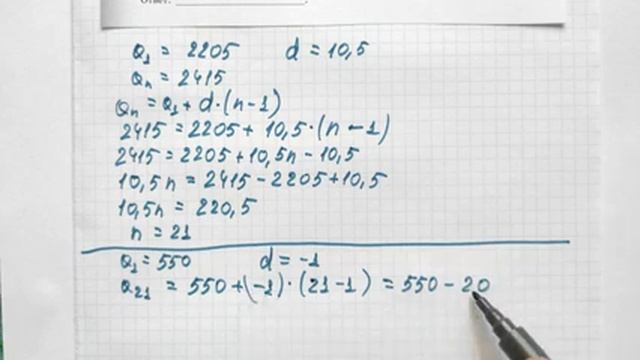 Ответ:
a₁ = 2205 d = 10,5
aₙ = 2415
aₙ = a₁ + d·(n-1)
2415 = 2205 + 10,5·(n-1)
2415 = 2205 + 10,5n - 10,5
10,5n = 2415 - 2205 + 10,5
10,5n = 220,5
n = 21
a₁ = 550 d = -1
a₂₁ = 550 + (-1)·(21-1) = 550 - 20